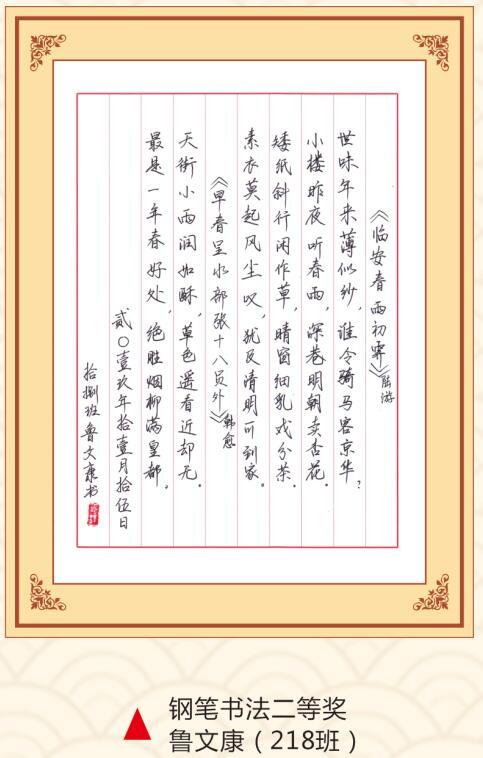 《临安春雨初霁》陆游
世味年来薄似纱，谁令骑马客京华？
小楼昨夜听春雨，深巷明朝卖杏花。
矮纸斜行闲作草，晴窗细乳戏分茶。
素衣莫起风尘叹，犹及清明可到家。
《早春呈水部张十八员外》韩愈
天街小雨润如酥，草色遥看近却无。
最是一年春好处，绝胜烟柳满皇都。
贰〇壹玖年拾壹月拾伍日
拾捌班鲁文康书
钢笔书法二等奖
鲁文康（218班）